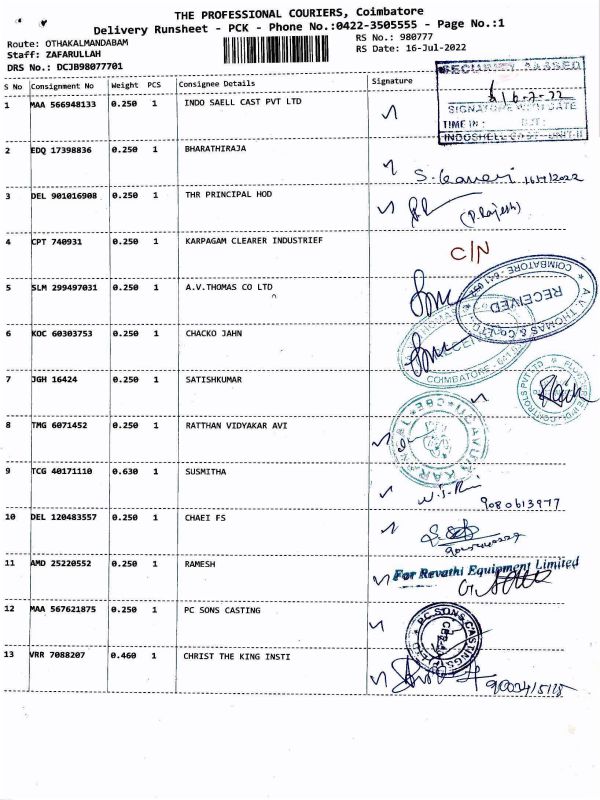 THE PROFESSIONAL COURIERS, Coimbatore
Delivery Runsheet - PCK - Phone No.:0422-3505555 - Page No.:1
Route: OTHAKALMANDABAM
RS No.: 980777
Staff: ZAFARULLAH
RS Date: 16-Jul-2022
DRS No.: DCJB98077701
S No Consignment No Weight PCS Consignee Details Signature
SECURITY PASSED
16-7-22
SIGNATURE WITH DATE
TIME IN :
INDOSHELL CAST UNIT-II
1 MAA 566948133 0.250 1 INDO SAELL CAST PVT LTD
2 EDQ 17398836 0.250 1 BHARATHIRAJA
3 DEL 901016908 0.250 1 THR PRINCIPAL HOD
(P. Rajesh)
4 CPT 740931 0.250 1 KARPAGAM CLEARER INDUSTRIEF
C/N
5 SLM 299497031 0.250 1 A.V.THOMAS CO LTD
A.V. THOMAS & Co. LTD. COIMBATORE - 641
RECEIVED
6 KOC 60303753 0.250 1 CHACKO JAHN
COIMBATORE - 641
7 JGH 16424 0.250 1 SATISHKUMAR
8 TMG 6071452 0.250 1 RATTHAN VIDYAKAR AVI
9 TCG 40171110 0.630 1 SUSMITHA
9080613977
10 DEL 120483557 0.250 1 CHAEI FS
11 AMD 25220552 0.250 1 RAMESH
For Revathi Equipment Limited
12 MAA 567621875 0.250 1 PC SONS CASTING
PC SONS CASTINGS (P) LTD
13 VRR 7088207 0.460 1 CHRIST THE KING INSTI